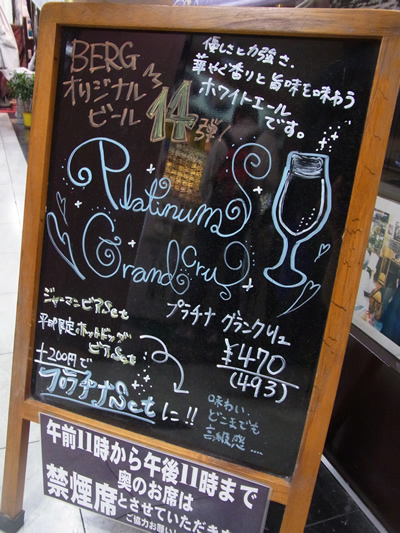 BERG
オリジナル
ビール
14弾!
優しさと力強さ、
華やぐ香りと旨味を味わう
ホワイトエール
です。
Platinum
Grand Cru
プラチナ グランクリュ
¥470
(493)
ジャーマンビアSet
平日限定ホットドッグ
ビアSet
+200円で
プラチナSetに!!
味わい、
どこまでも
高級感....
午前11時から午後11時まで
奥のお席は
禁煙席とさせていただきま
ご協力お願い